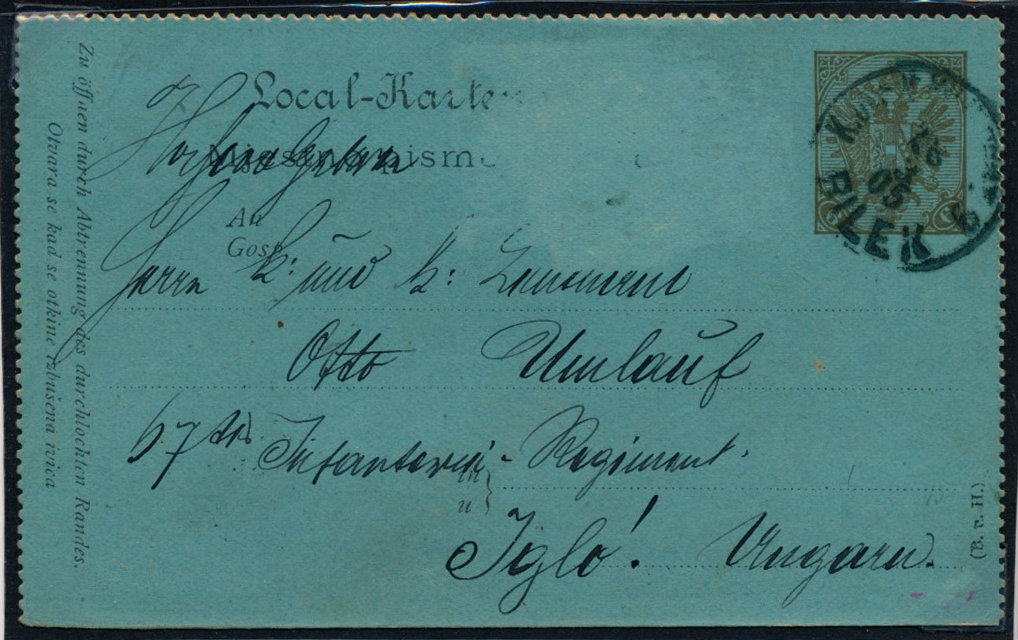 Zu öffnen durch Abtrennung des durchlochten Randes.
Otvara se kad se otkine izbušena ivica
Local-Karte
An
Gosp.
Herrn K: und K: Leutnant
Otto Umlauf
67tes Infanterie-Regiment.
in
u
Igló! Ungarn.
(B. u. H.)
05
BILEK